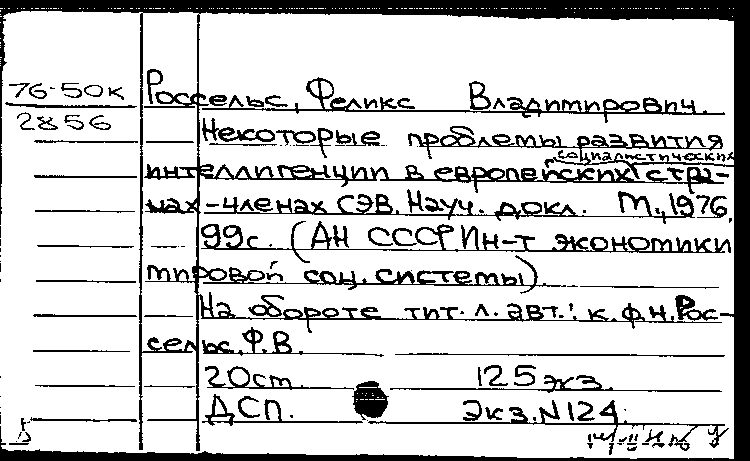 76-50к Россельс, Феликс Владимирович.
2856
Некоторые проблемы развития
социалистических
интеллигенции в европейских стра-
нах-членах СЭВ. Науч. докл. М., 1976.
99с. (АН СССР Ин-т экономики
мировой соц. системы).
На обороте тит. л. авт.: к.ф.н. Рос-
сельс. Ф.В.
20ст. 125экз.
ДСП. Экз. N124.